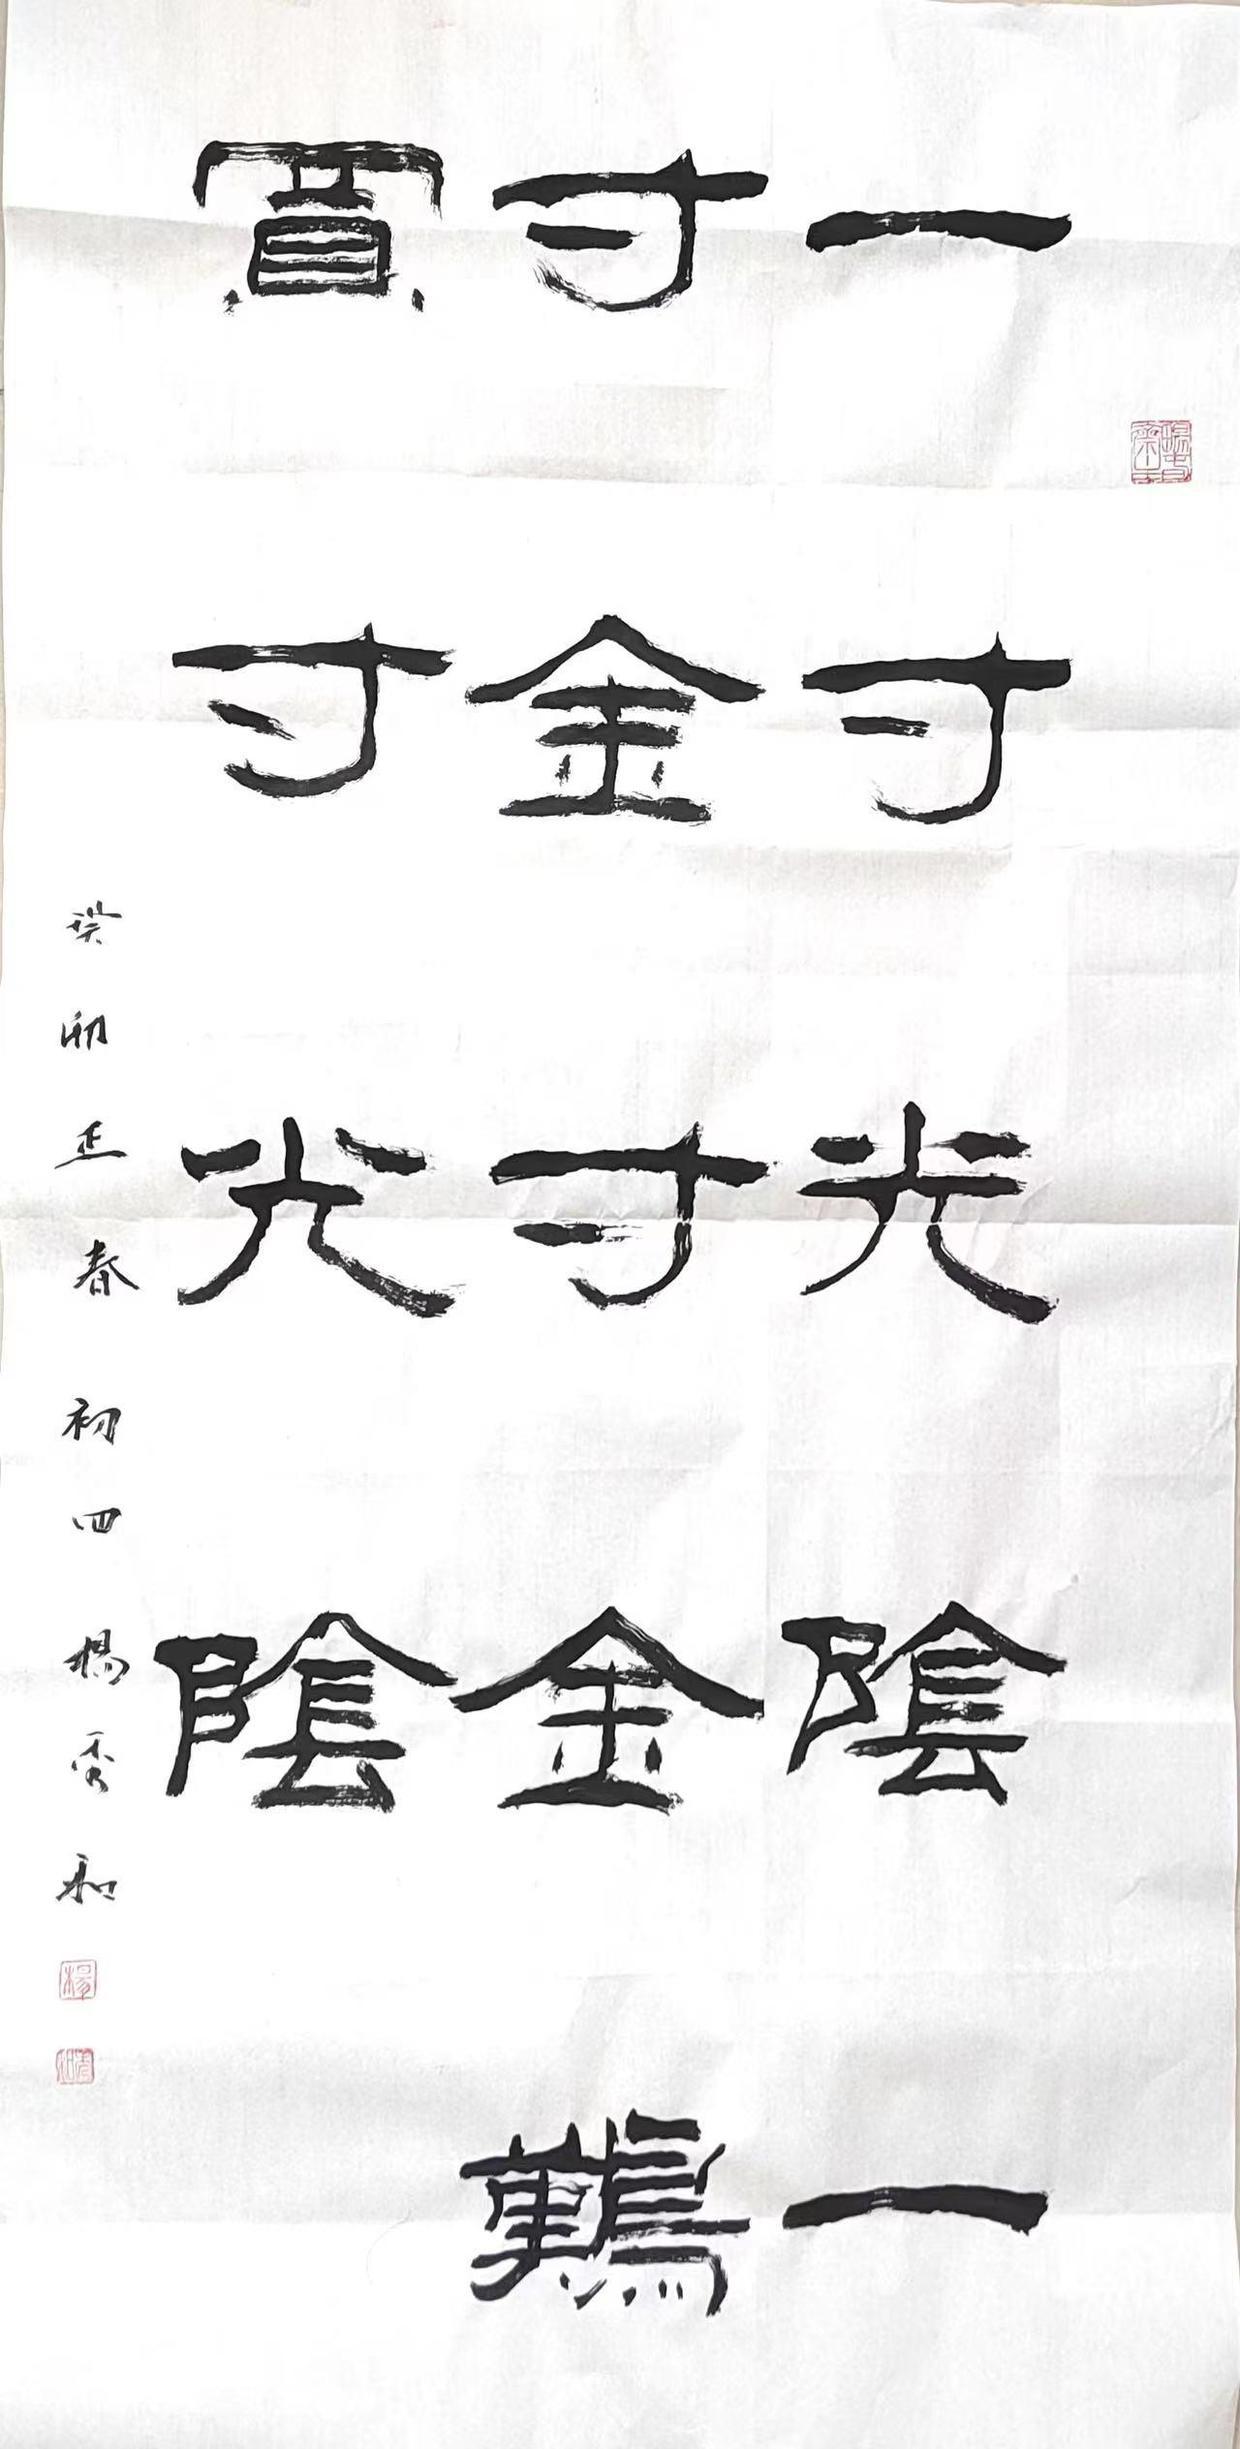 一寸光陰一
寸金寸金難
買寸光陰
癸卯正春初四楊秀和
楊